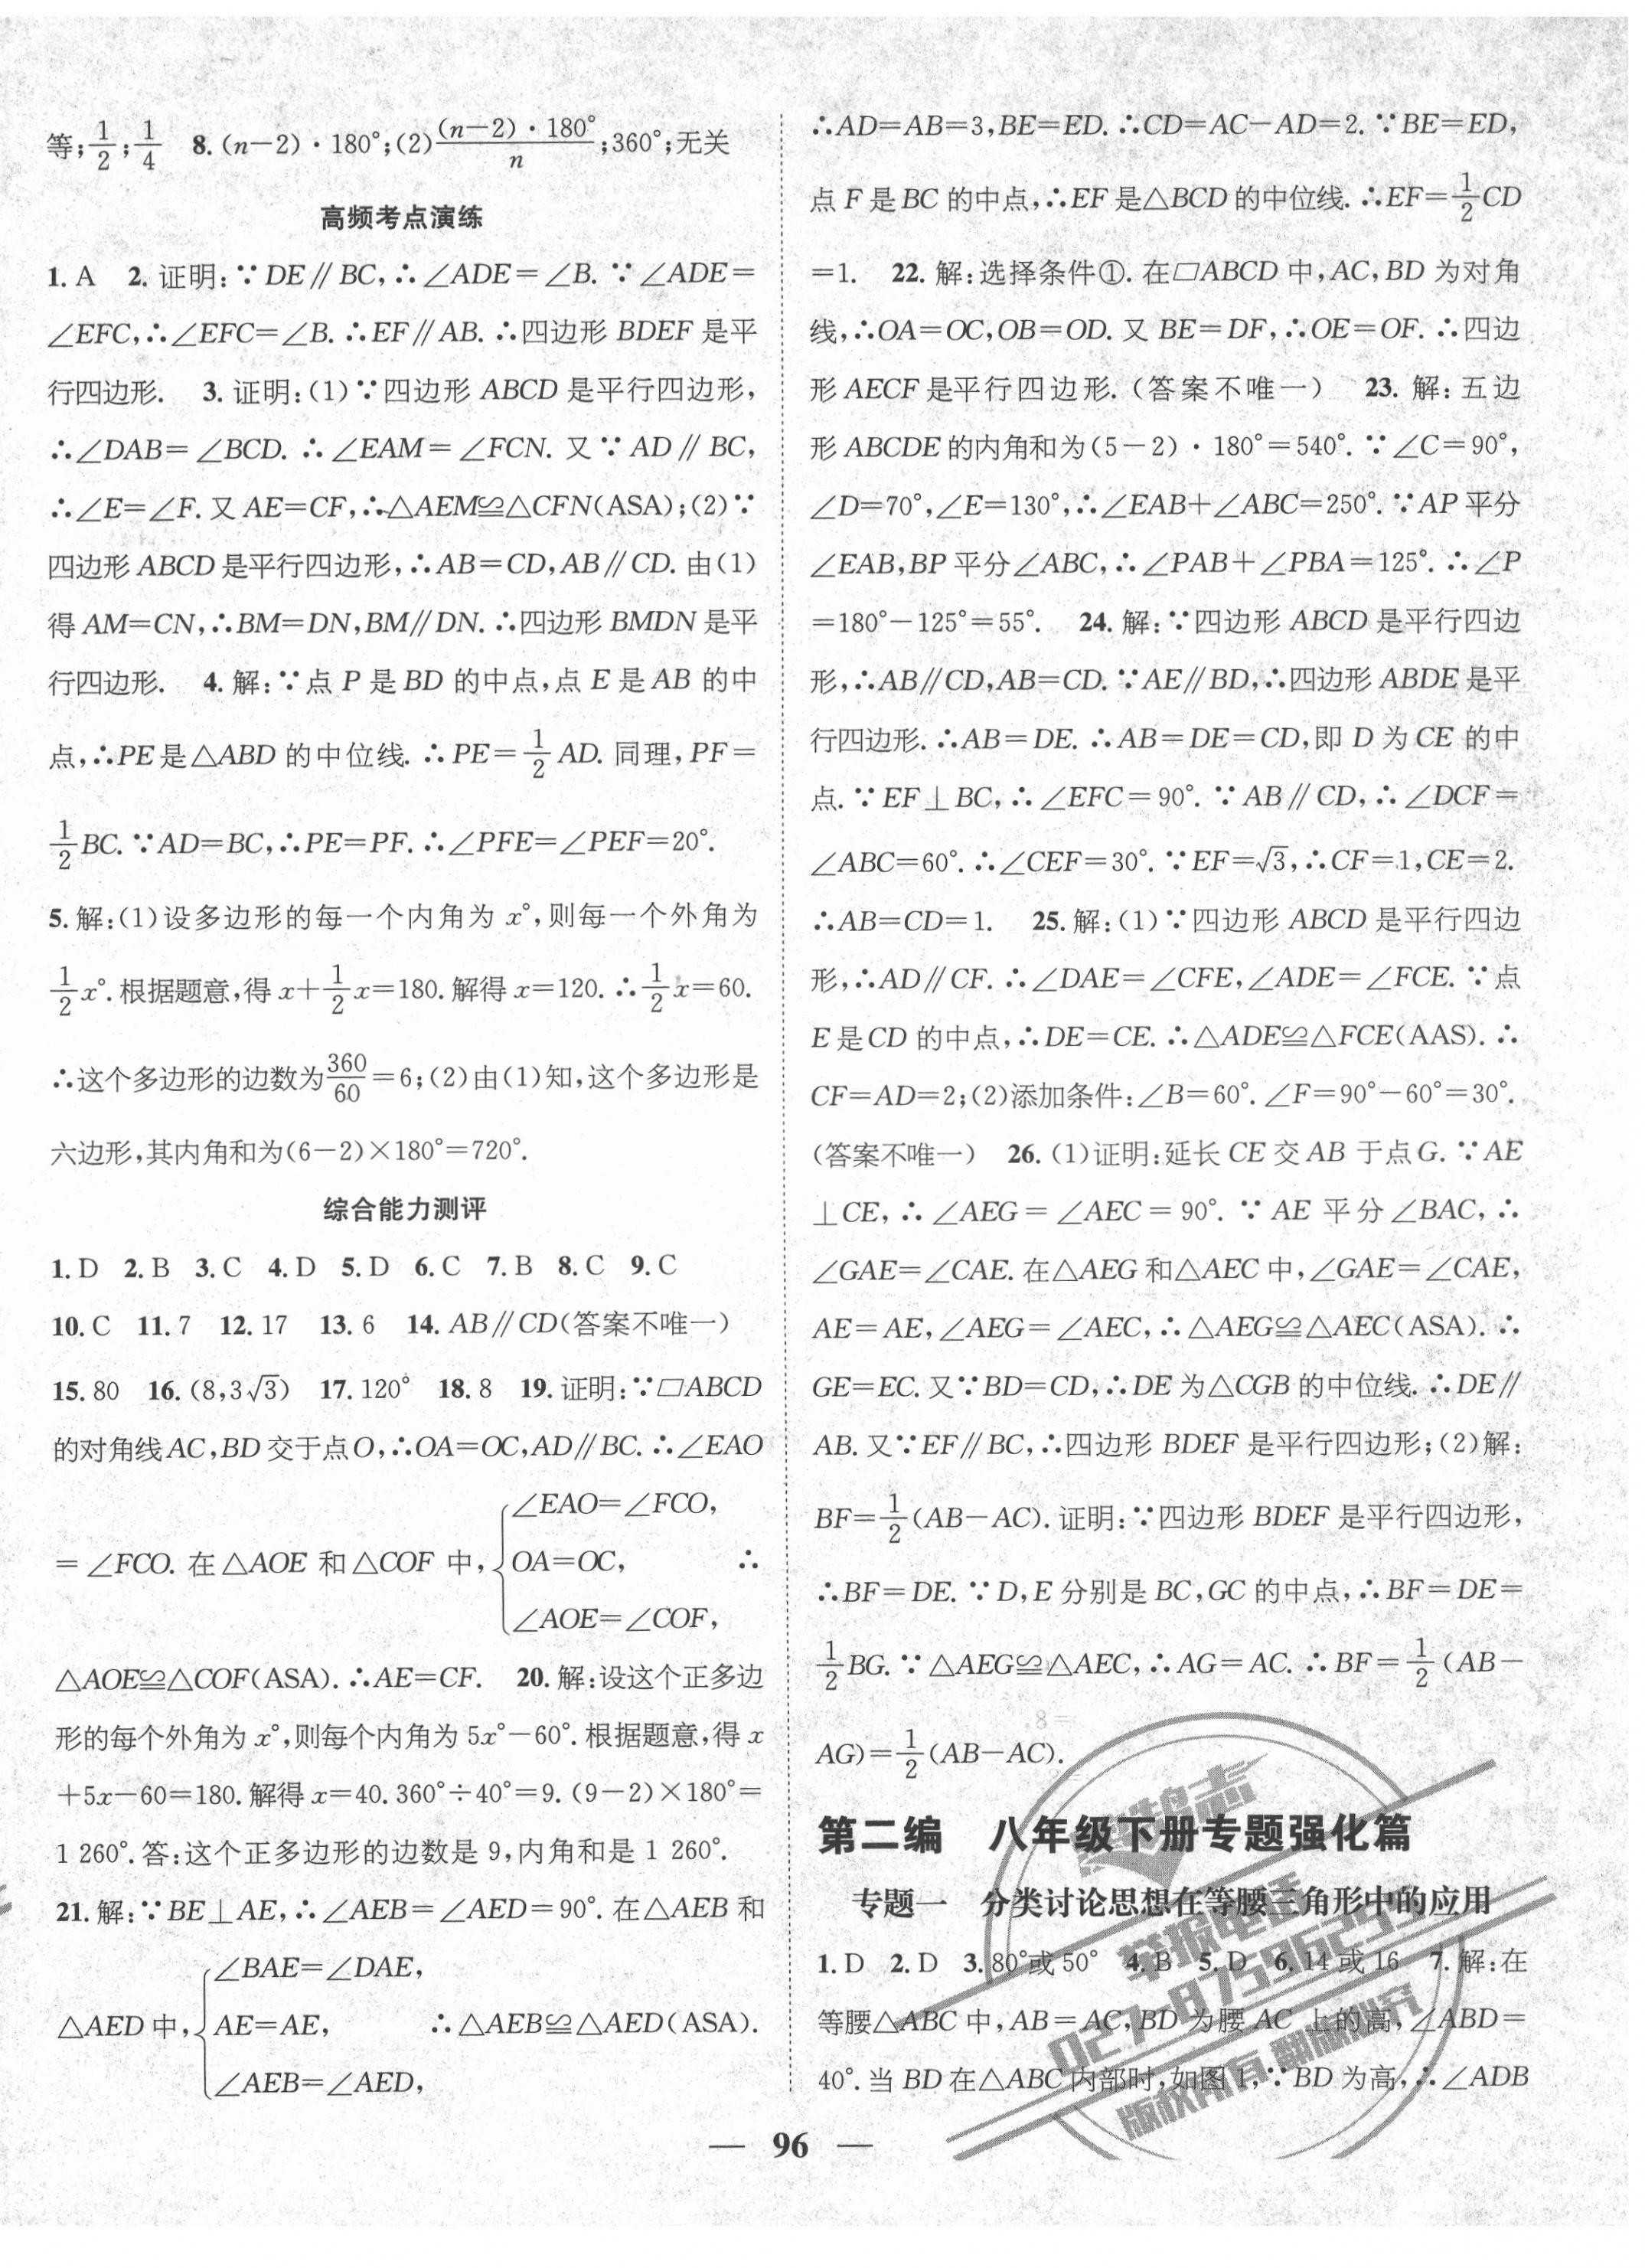 等;1/2;1/4 8.(n-2)·180°;(2)(n-2)·180°/n;360°;无关
高频考点演练
1. A 2. 证明:∵DE∥BC,∴∠ADE=∠B. ∵∠ADE=
∠EFC,∴∠EFC=∠B. ∴EF∥AB. ∴四边形 BDEF 是平
行四边形. 3. 证明:(1)∵四边形 ABCD 是平行四边形,
∴∠DAB=∠BCD. ∴∠EAM=∠FCN. 又∵AD∥BC,
∴∠E=∠F. 又 AE=CF,∴△AEM≌△CFN(ASA);(2)∵
四边形 ABCD 是平行四边形,∴AB=CD,AB∥CD. 由(1)
得 AM=CN,∴BM=DN,BM∥DN. ∴四边形 BMDN 是平
行四边形. 4. 解:∵点 P 是 BD 的中点,点 E 是 AB 的中
点,∴PE 是△ABD 的中位线. ∴PE=1/2 AD. 同理,PF=
1/2 BC. ∵AD=BC,∴PE=PF. ∴∠PFE=∠PEF=20°.
5. 解:(1)设多边形的每一个内角为 x°,则每一个外角为
1/2 x°. 根据题意,得 x+1/2 x=180. 解得 x=120. ∴1/2 x=60.
∴这个多边形的边数为360/60=6;(2)由(1)知,这个多边形是
六边形,其内角和为(6-2)×180°=720°.
综合能力测评
1. D 2. B 3. C 4. D 5. D 6. C 7. B 8. C 9. C
10. C 11. 7 12. 17 13. 6 14. AB∥CD(答案不唯一)
15. 80 16. (8,3√3) 17. 120° 18. 8 19. 证明:∵▱ABCD
的对角线 AC,BD 交于点 O,∴OA=OC,AD∥BC. ∴∠EAO
∠EAO=∠FCO,
=∠FCO. 在△AOE 和△COF 中,{OA=OC, ∴
∠AOE=∠COF,
△AOE≌△COF(ASA). ∴AE=CF. 20. 解:设这个正多边
形的每个外角为 x°,则每个内角为 5x°-60°. 根据题意,得 x
+5x-60=180. 解得 x=40. 360°÷40°=9. (9-2)×180°=
1 260°. 答:这个正多边形的边数是 9,内角和是 1 260°.
21. 解:∵BE⊥AE,∴∠AEB=∠AED=90°. 在△AEB 和
∠BAE=∠DAE,
△AED 中,{AE=AE, ∴△AEB≌△AED(ASA).
∠AEB=∠AED,
∴AD=AB=3,BE=ED. ∴CD=AC-AD=2. ∵BE=ED,
点 F 是 BC 的中点,∴EF 是△BCD 的中位线. ∴EF=1/2 CD
=1. 22. 解:选择条件①. 在▱ABCD 中,AC,BD 为对角
线,∴OA=OC,OB=OD. 又 BE=DF,∴OE=OF. ∴四边
形 AECF 是平行四边形. (答案不唯一) 23. 解:五边
形 ABCDE 的内角和为(5-2)·180°=540°. ∵∠C=90°,
∠D=70°,∠E=130°,∴∠EAB+∠ABC=250°. ∵AP 平分
∠EAB,BP 平分∠ABC,∴∠PAB+∠PBA=125°. ∴∠P
=180°-125°=55°. 24. 解:∵四边形 ABCD 是平行四边
形,∴AB∥CD,AB=CD. ∵AE∥BD,∴四边形 ABDE 是平
行四边形. ∴AB=DE. ∴AB=DE=CD,即 D 为 CE 的中
点. ∵EF⊥BC,∴∠EFC=90°. ∵AB∥CD,∴∠DCF=
∠ABC=60°. ∴∠CEF=30°. ∵EF=√3,∴CF=1,CE=2.
∴AB=CD=1. 25. 解:(1)∵四边形 ABCD 是平行四边
形,∴AD∥CF. ∴∠DAE=∠CFE,∠ADE=∠FCE. ∵点
E 是 CD 的中点,∴DE=CE. ∴△ADE≌△FCE(AAS). ∴
CF=AD=2;(2)添加条件:∠B=60°. ∠F=90°-60°=30°.
(答案不唯一) 26. (1)证明:延长 CE 交 AB 于点 G. ∵AE
⊥CE,∴∠AEG=∠AEC=90°. ∵AE 平分∠BAC,∴
∠GAE=∠CAE. 在△AEG 和△AEC 中,∠GAE=∠CAE,
AE=AE,∠AEG=∠AEC,∴△AEG≌△AEC(ASA). ∴
GE=EC. 又∵BD=CD,∴DE 为△CGB 的中位线. ∴DE∥
AB. 又∵EF∥BC,∴四边形 BDEF 是平行四边形;(2)解:
BF=1/2(AB-AC). 证明:∵四边形 BDEF 是平行四边形,
∴BF=DE. ∵D,E 分别是 BC,GC 的中点,∴BF=DE=
1/2 BG. ∵△AEG≌△AEC,∴AG=AC. ∴BF=1/2(AB-
AG)=1/2(AB-AC).
第二编 八年级下册专题强化篇
专题一 分类讨论思想在等腰三角形中的应用
1. D 2. D 3. 80°或 50° 4. B 5. D 6. 14 或 16 7. 解:在
等腰△ABC 中,AB=AC,BD 为腰 AC 上的高,∠ABD=
40°. 当 BD 在△ABC 内部时,如图 1,∵BD 为高,∴∠ADB
举报电话
027-87596295
版权所有 翻版必究
— 96 —